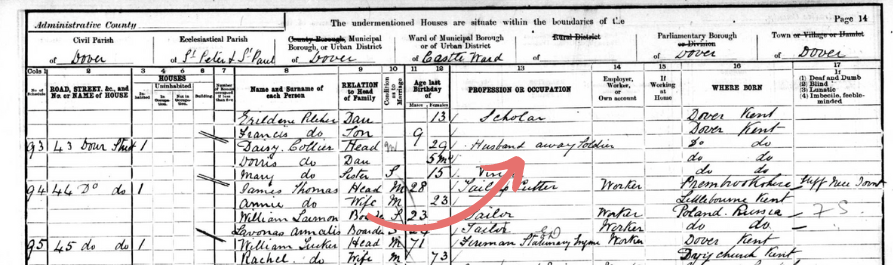 Administrative County
The undermentioned Houses are situate within the boundaries of the
Page 14
Civil Parish
of Dover
Ecclesiastical Parish
of St Peter & St Paul
County Borough, Municipal Borough, or Urban District
of Dover
Ward of Municipal Borough or of Urban District
of Castle Ward
Rural District
of
Parliamentary Borough or Division
of Dover
Town or Village or Hamlet
of Dover
Cols 1 2 3 4 5 6 7 8 9 10 11 12 13 14 15 16 17
ROAD, STREET, &c., and No. or NAME of HOUSE
HOUSES
Inhabited
Uninhabited
In Occupation
Not in Occupation
Building
Name and Surname of each Person
RELATION to Head of Family
Condition as to Marriage
Age last Birthday of
Males Females
PROFESSION OR OCCUPATION
Employer, Worker, or Own account
If Working at Home
WHERE BORN
(1) Deaf and Dumb
(2) Blind
(3) Lunatic
(4) Imbecile, feeble-minded
do Dau 13 Scholar Dover Kent
Francis do Son 9 Dover Kent
93 43 Dour Street 1 Daisy Collier Head M 29 Husband away Soldier Do do
Dorris do Dau 5 do do
Mary do Sister S 15 do do
94 44 Do do 1 James Thomas Head M 28 Tailors Cutter Worker
Annie do Wife M 23 Littlebourne Kent
William S 23 Tailor Worker Poland Russia
Boarder S Tailor Worker do do
95 45 do do 1 William Head M 71 Fireman Stationary Engine Worker Dover Kent
Rachel do Wife M 73 Kent